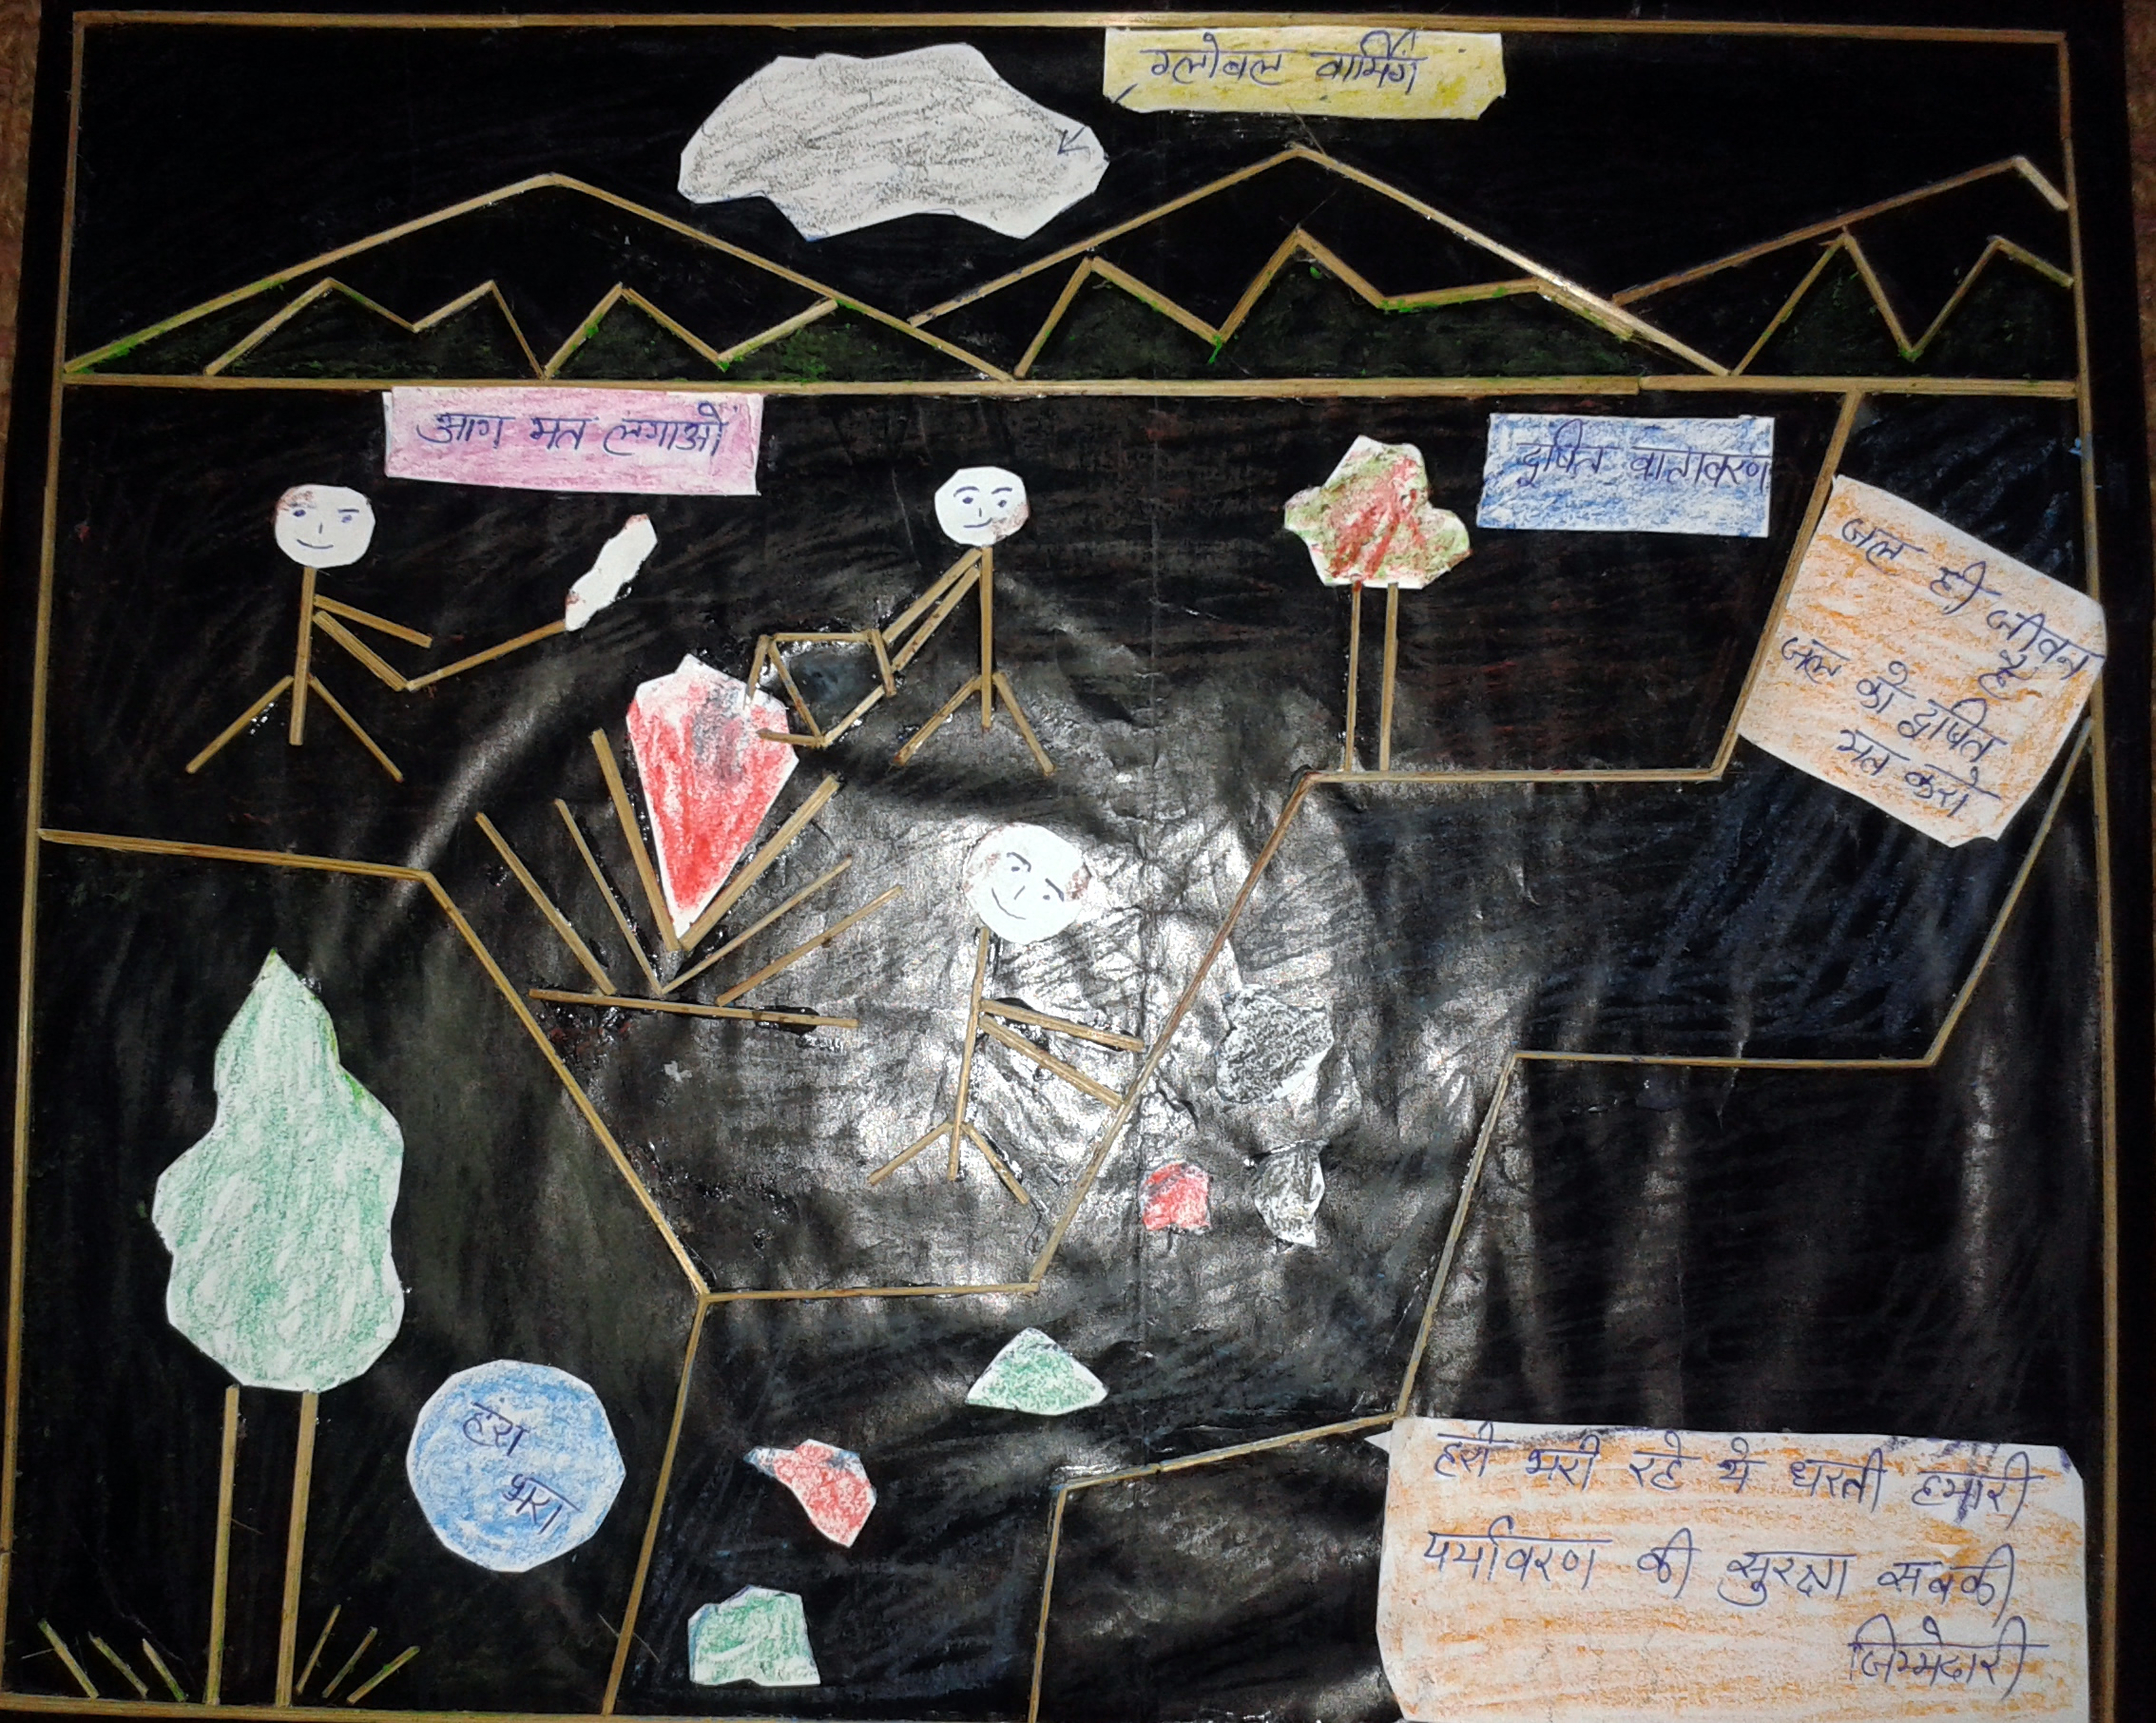 ग्लोबल वार्मिंग
आग मत लगाओं
दूषित वातावरण
जल ही जीवन
है
जल को दूषित
मत करो
हरा
भरा
हरी भरी रहे ये धरती हमारी
पर्यावरण की सुरक्षा सबकी
जिम्मेदारी